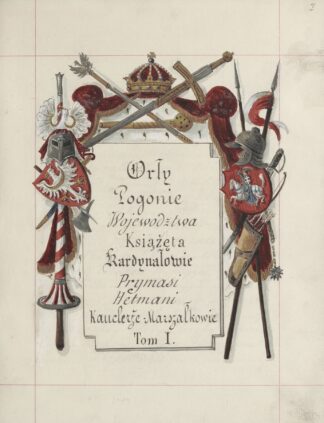 2
Orły
Pogonie
Województwa
Książęta
Kardynałowie
Prymasi
Hetmani
Kanclerze-Marszałkowie
Tom I.